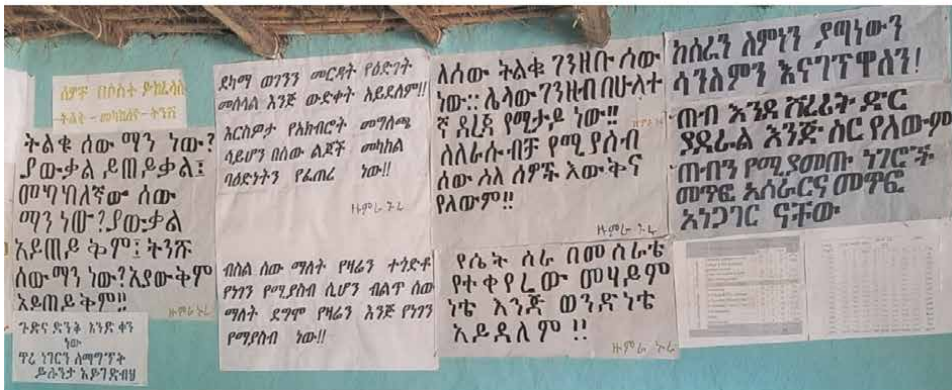 ሰዎች በሶስት ይከፈላሉ
ትልቅ - መካከለኛ - ትንሽ
ትልቁ ሰው ማን ነው?
ያውቃል ይጠይቃል፤
መካከለኛው ሰው
ማን ነው? ያውቃል
አይጠይቅም፤ ትንሹ
ሰው ማን ነው? አያውቅም
አይጠይቅም!!
ዙምራ ኑሩ
ጉድና ድንቅ አንድ ቀን
ነው
ጥሩ ነገርን ለማግኘት
ይሉንታ አይገድብህ
ደካማ ወገንን መርዳት የዕድገት
መሰላል እንጅ ውድቀት አይደለም!!
እርስዎታ የአክብሮት መግለጫ
ሳይሆን በሰው ልጆች መካከል
ባዕድነትን የፈጠረ ነው!!
ዙምራ ኑሩ
ብስል ሰው ማለት የዛሬን ተጎድቶ
የነገን የሚያስብ ሲሆን ብልጥ ሰው
ማለት ደግሞ የዛሬን እንጅ የነገን
የማያስብ ነው!!
ለሰው ትልቁ ገንዘቡ ሰው
ነው፡፡ ሌላው ገንዘብ በሁለተ
ኛ ደረጃ የሚታይ ነው!!
ስለራሱ ብቻ የሚያስብ
ሰው ስለ ሰዎች እውቅና
የለውም!!
ዙምራ ኑሩ
የሴት ስራ በመስራቴ
የተቀየረው መሃይም
ነቴ እንጅ ወንድነቴ
አይደለም !!
ዙምራ ኑሩ
ከሰረን ለምነን ያጣነውን
ሳንለምን እናገኘዋለን!
ጠብ እንደ ሸረሪት ድር
ያደራል እንጅ ስር የለውም
ጠብን የሚያመጡ ነገሮች
መጥፎ አሰራርና መጥፎ
አነጋገር ናቸው